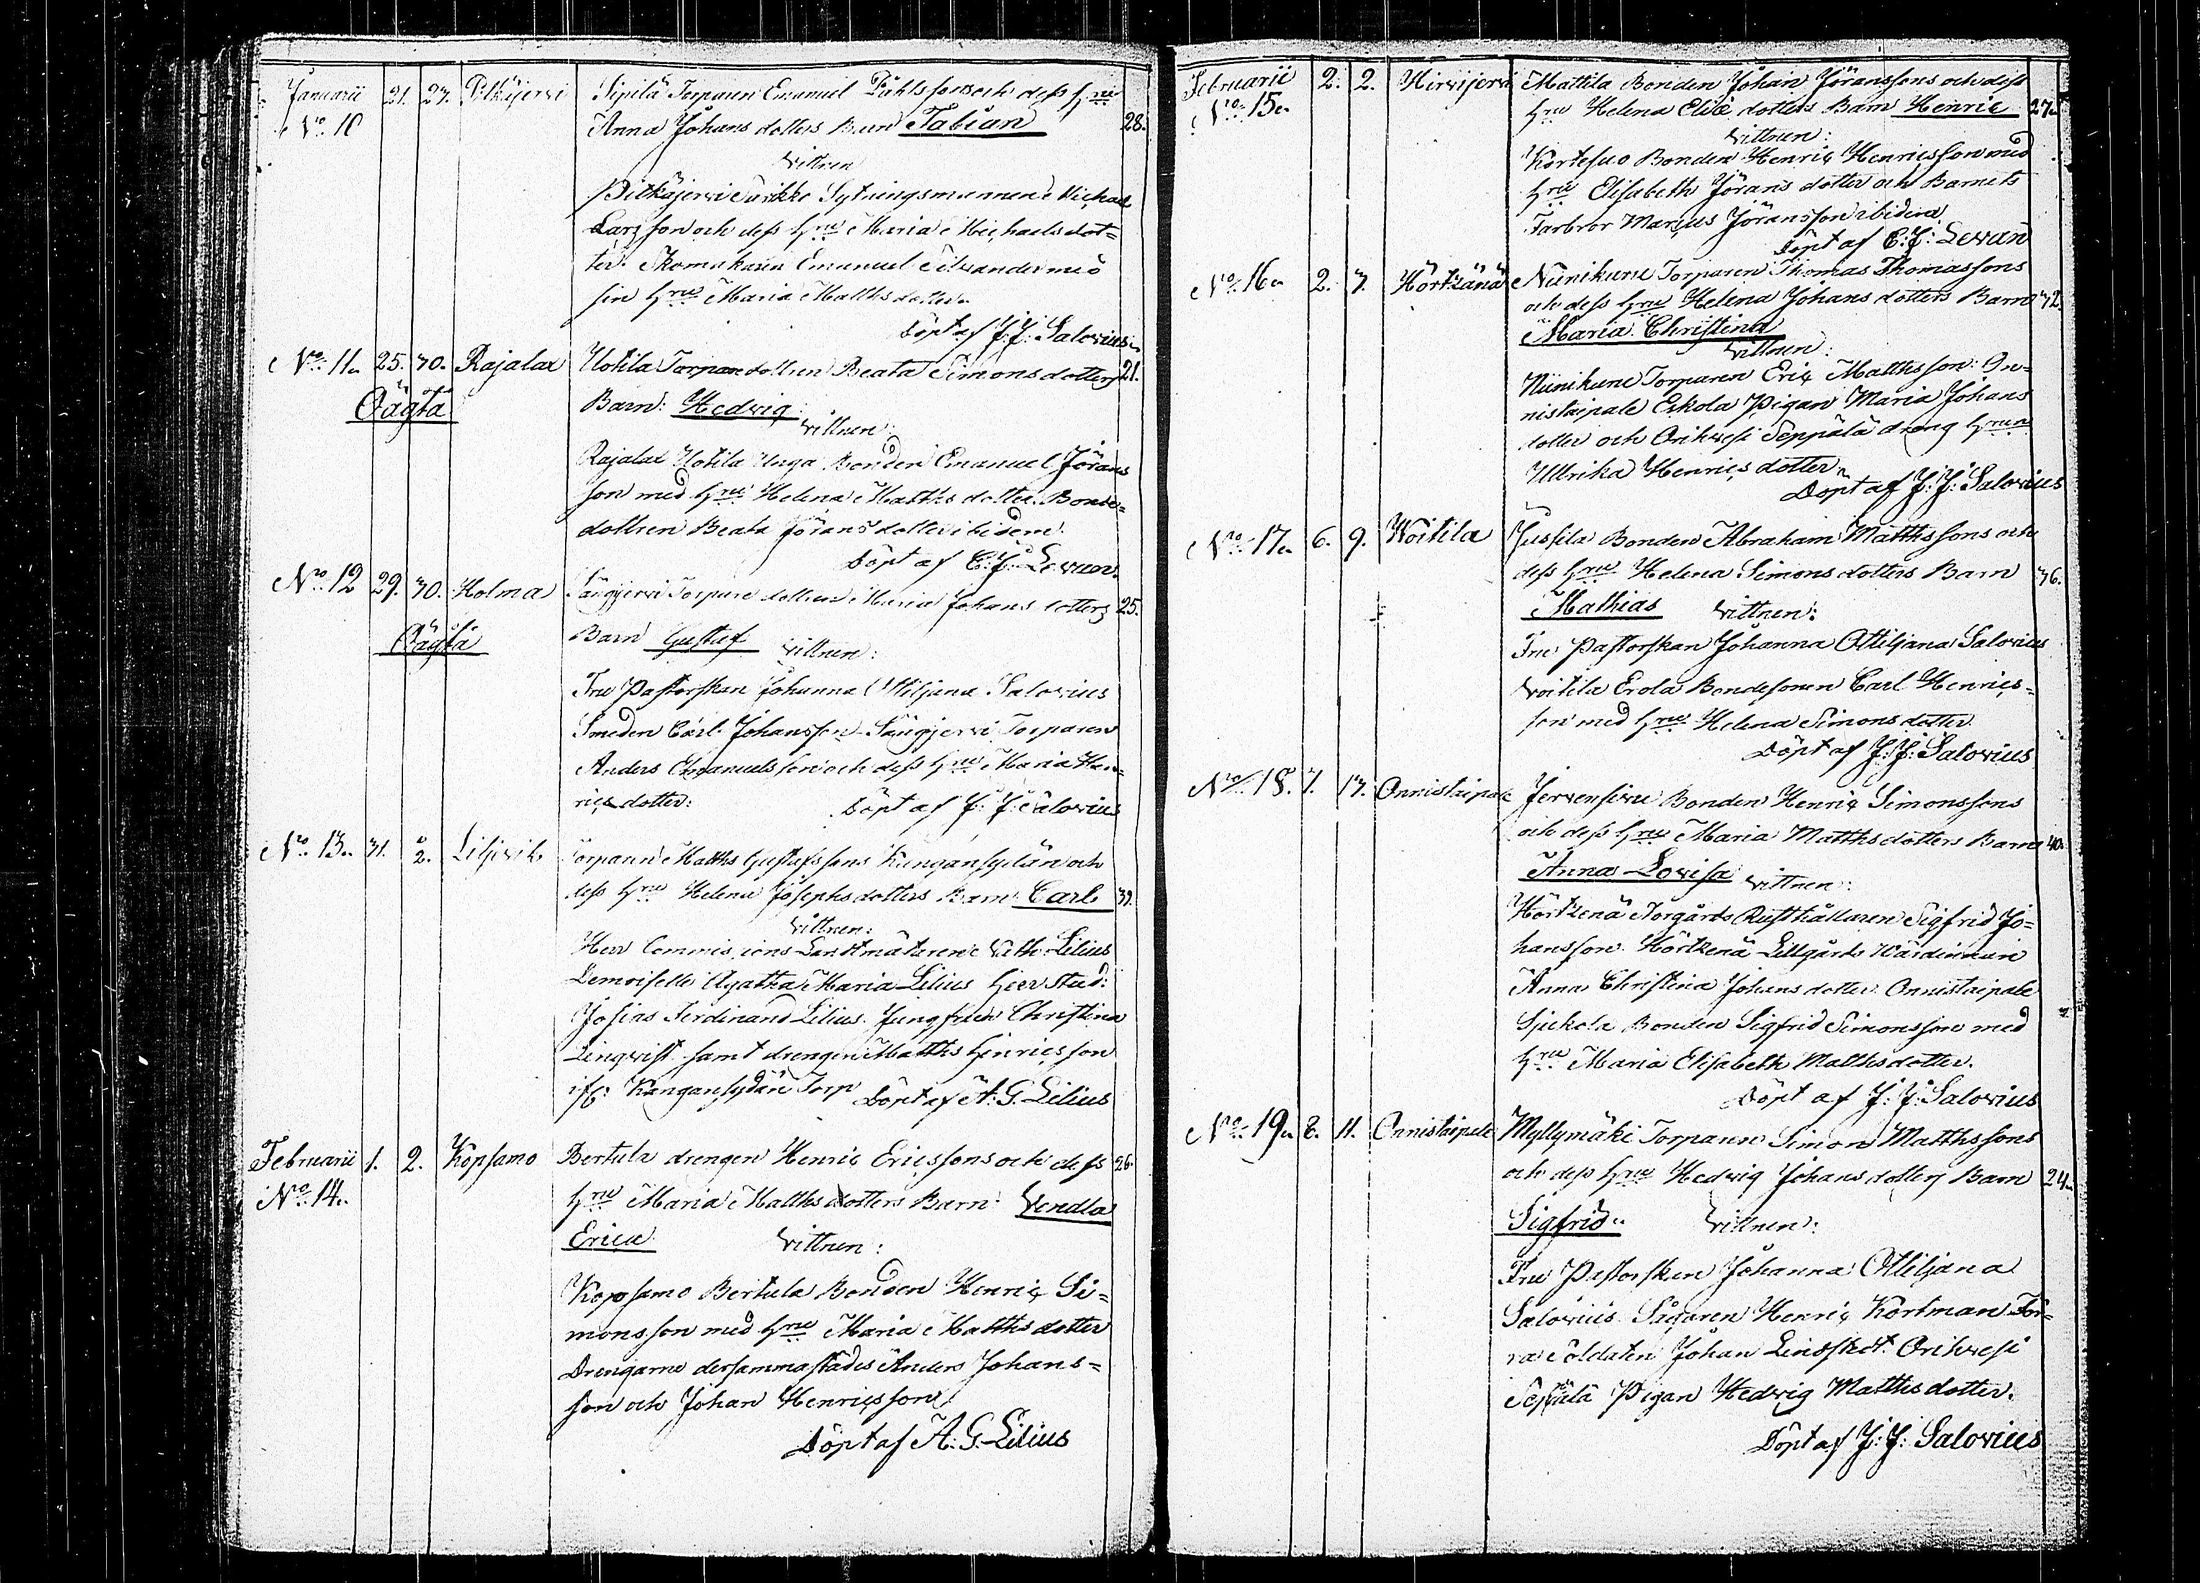 Januarii 21. 27. Pitkäjervi Sipilä Torparen Emanuel Påhlssons och dess hru
No 10 Anna Johans dotters Barn Fabian 28.
vittnen
Pitkäjervi Sytningsmannen Michael
Larsson och dess hru Maria Michaels dot=
ter. Skomakaren Emanuel med
sin hru Maria Matths dotter.
Döpt af J: J: Salovius
No 11. 25. 30. Rajalax Uotila Torpare dottren Beata Simons dotters 21.
Oägta Barn: Hedvig
vittnen:
Rajalax Uotila Unga Bonden Emanuel Jörans
son med hru Helena Matths dotter. Bonde=
dottren Beata Jörans dotter ibidem.
Döpt af C: J: Levan.
No 12 29. 30. Holma Sängjervi Torpare dottren Maria Johans dotters 25.
Oägta Barn Gustaf vittnen:
Fru Pastorskan Johanna Ottiljana Salovius
Smeden Carl Johansson Sängjervi Torparen
Anders Emanuelsson och dess hru Maria Hen=
rics dotter: Döpt af J: J: Salovius
No 13. 31. 2. Liljevik Torparen Matths Gustafssons Kangansydän och
dess hru Helena Josephs dotters Barn Carl 39.
vittnen:
Herr Commissions Landtmätaren Lilius
Demoiselle Agatha Maria Lilius herr Stud:
Josias Ferdinand Lilius. Jungfrun Christina
Linqvist samt drengen Matths Henricsson
ifr: Kangansydän Torp Döpt af A: G. Lilius
Februarii 1. 2. Kopsamo Bertula drengen Henric Ericssons och dess 26.
No 14. hru Maria Matths dotters Barn Vendla
Erica vittnen:
Kopsamo Bertula Bonden Henric Si=
monsson med hru Maria Matths dotter
Drengarne dersammastädes Anders Johans=
son och Johan Henricsson
Döpt af A: G. Lilius
Februarii 2. 2. Hirvijervi Mattila Bonden Johan Jöranssons och dess
No 15. hru Helena Eliæ dotters Barn Henric 27.
vittnen:
Kortesuo Bonden Henric Henricsson med
hru Elisabeth Jörans dotter och Barnets
Farbror Marcus Jöransson ibidem.
Döpt af C: J: Levan
No 16. 2. 7. Hörtzänä Niinikuru Torparen Thomas Thomassons
och dess hru Helena Johans dotters Barn 32.
Maria Christina
vittnen:
Niinikuru Torparen Eric Matthsson: On=
nistaipale Eskola Pigan Maria Johans
dotter och Orihvesi Seppälä dreng hrun
Ullrika Henrics dotter.
Döpt af J: J: Salovius
No 17. 6. 9. Woitila Jussila Bonden Abraham Matthssons och
dess hru Helena Simons dotters Barn 36.
Mathias vittnen:
Fru Pastorskan Johanna Ottiljana Salovius
Voitila Erola Bondesonen Carl Henrics=
son med hru Helena Simons dotter.
Döpt af J: J: Salovius
No 18. 7. 13. Onnistaipale Jervensivu Bonden Henric Simonssons
och dess hru Maria Matths dotters Barn 40.
Anna Lovisa vittnen:
Hörtzenä Storgårds Rusthållaren Sigfrid Jo=
hansson. Hörtzenä Lillgårds Värdinnan
Anna Christina Johans dotter. Onnistaipale
Sjukola Bonden Sigfrid Simonsson med
hru Maria Elisabeth Matths dotter.
Döpt af J: J: Salovius
No 19. 8. 11. Onnistaipale Myllymäki Torparen Simon Matthssons
och dess hru Hedvig Johans dotters Barn 24.
Sigfrid. vittnen:
Fru Pastorskan Johanna Ottiljana
Salovius Sågaren Henric Kortman. För=
ra Soldaten Johan Lindstedt. Orihvesi
Seppälä Pigan Hedvig Matths dotter.
Döpt af J: J: Salovius